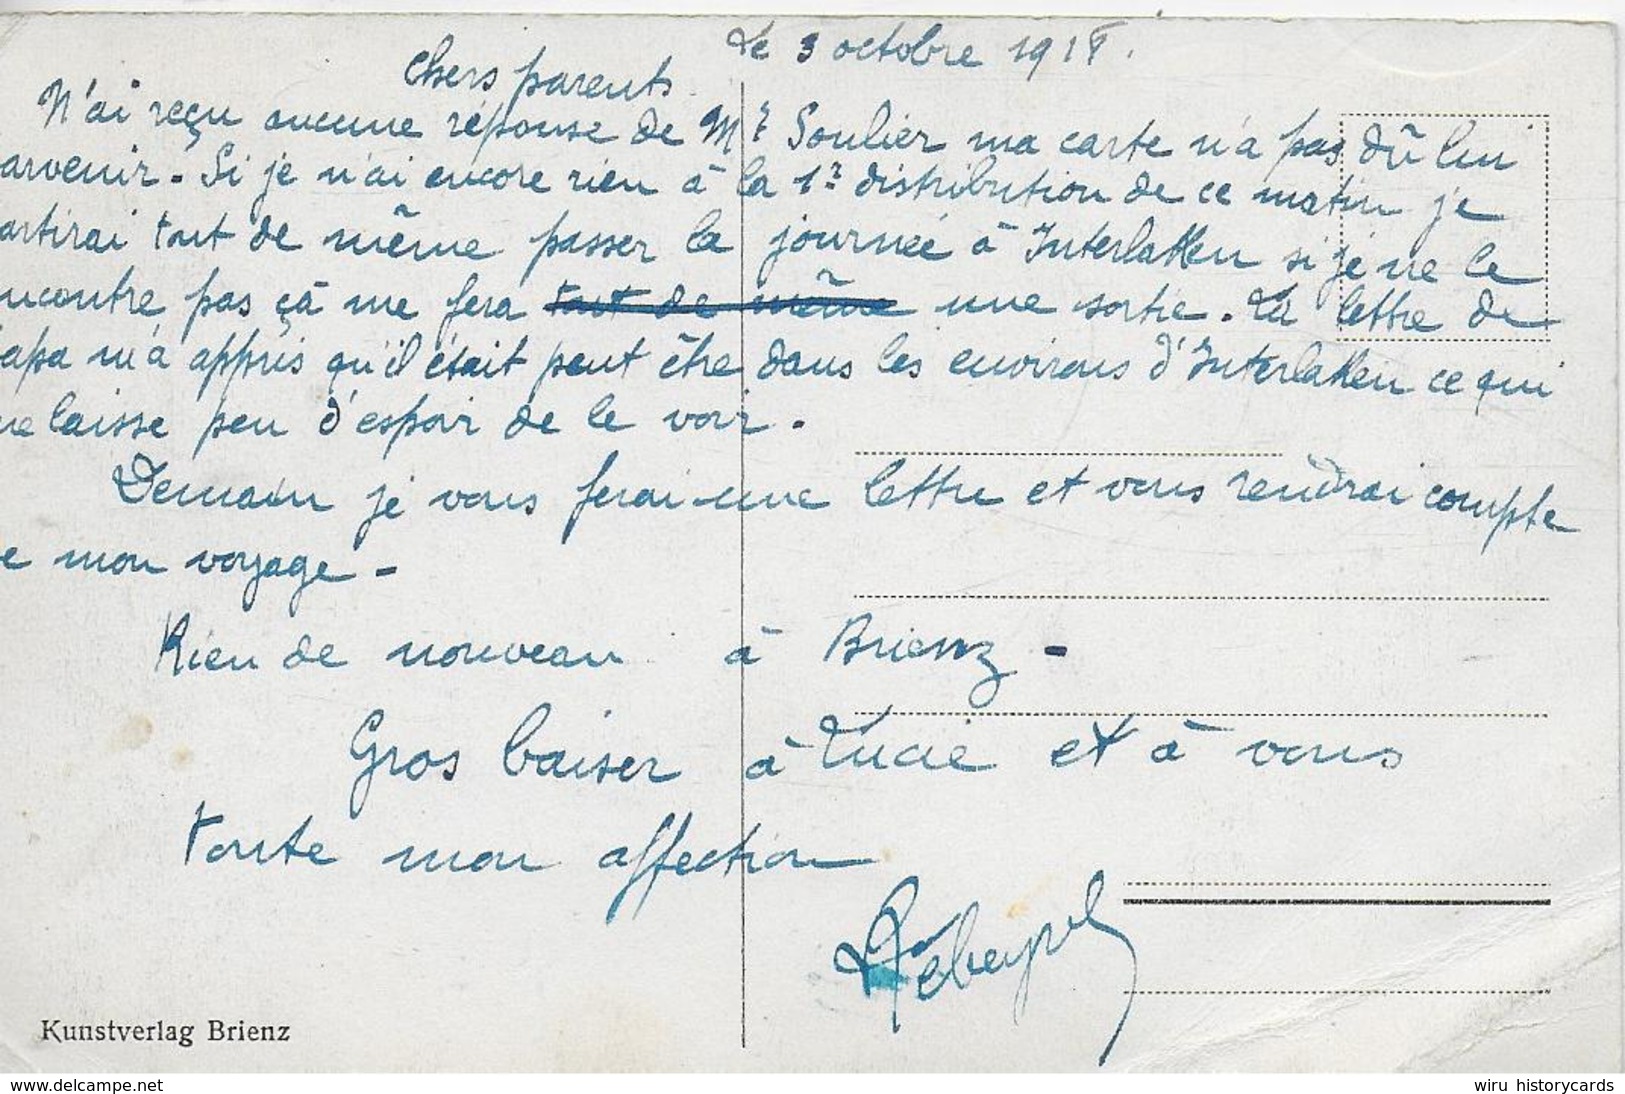 Le 3 octobre 1918.
Chers parents
N'ai reçu aucune réponse de Mr Soulier ma carte n'a pas dû lui
arvenir - Si je n'ai encore rien à la 1re distribution de ce matin je
artirai tout de même passer la journée à Interlaken si je ne le
ncontre pas çà me fera tout de même une sortie. La lettre de
apa m'a appris qu'il était peut être dans les environs d'Interlaken ce qui
e laisse peu d'espoir de le voir.
Demain je vous ferai une lettre et vous rendrai compte
e mon voyage -
Rien de nouveau à Brienz -
Gros baiser à Lucie et à vous
toute mon affection
Kunstverlag Brienz
www.delcampe.net
wiru historycards